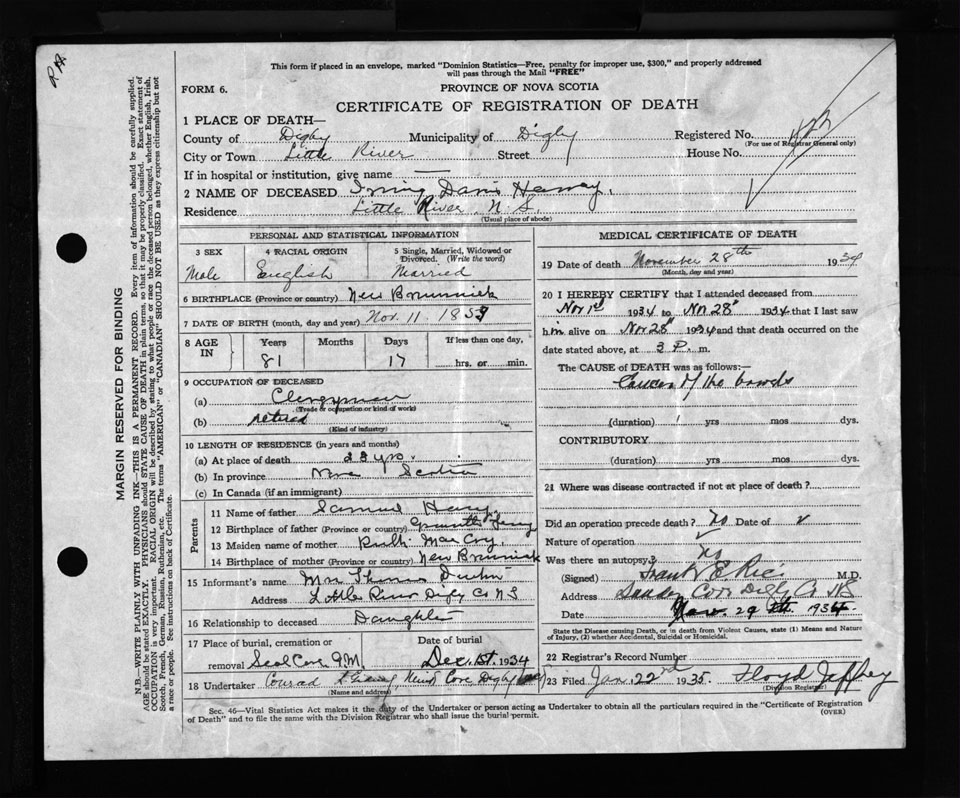 This form if placed in an envelope, marked "Dominion Statistics—Free, penalty for improper use, $300," and properly addressed
will pass through the Mail "FREE"
FORM 6.
PROVINCE OF NOVA SCOTIA
CERTIFICATE OF REGISTRATION OF DEATH
1 PLACE OF DEATH—
County of Digby Municipality of Digby Registered No.
(For use of Registrar General only)
City or Town Little River Street House No.
If in hospital or institution, give name —
2 NAME OF DECEASED Irving Davis Harvey.
Residence Little River N S.
(Usual place of abode)
PERSONAL AND STATISTICAL INFORMATION
3 SEX 4 RACIAL ORIGIN 5 Single, Married, Widowed or Divorced. (Write the word)
Male English Married
6 BIRTHPLACE (Province or country) New Brunswick
7 DATE OF BIRTH (month, day and year) Nov. 11 1853
8 AGE IN Years Months Days If less than one day,
81 17 hrs. or min.
9 OCCUPATION OF DECEASED
(a) Clergyman
(Trade or occupation or kind of work)
(b) retired
(Kind of industry)
10 LENGTH OF RESIDENCE (in years and months)
(a) At place of death yrs.
(b) In province Nova Scotia
(c) In Canada (if an immigrant)
Parents
11 Name of father Samuel
12 Birthplace of father (Province or country)
13 Maiden name of mother Ruth
14 Birthplace of mother (Province or country) New Brunswick
15 Informant's name Mrs Thomas
Address Little River Digby Co N S
16 Relationship to deceased Daughter
17 Place of burial, cremation or Date of burial
removal Seal Cove G.M. Dec. 1st. 1934
18 Undertaker Conrad Cove, Digby
(Name and address)
MEDICAL CERTIFICATE OF DEATH
19 Date of death November 28th 1934
(Month, day and year)
20 I HEREBY CERTIFY that I attended deceased from
Nov 1st 1934 to Nov 28 1934 that I last saw
him alive on Nov 28 1934 and that death occurred on the
date stated above, at 3 P. m.
The CAUSE OF DEATH was as follows:—
Cancer of the bowels
(duration) yrs mos dys.
CONTRIBUTORY
(duration) yrs mos dys.
21 Where was disease contracted if not at place of death?
Did an operation precede death? No Date of
Nature of operation
Was there an autopsy? No
(Signed) Frank E. Rice M.D.
Address Sandy Cove Digby Co NS
Date Nov. 29th 1934
State the Disease causing Death, or in death from Violent Causes, state (1) Means and Nature of Injury, (2) whether Accidental, Suicidal or Homicidal.
22 Registrar's Record Number
23 Filed Jan 22nd 1935. Floyd
(Division Registrar)
Sec. 46—Vital Statistics Act makes it the duty of the Undertaker or person acting as Undertaker to obtain all the particulars required in the "Certificate of Registration
of Death" and to file the same with the Division Registrar who shall issue the burial permit.
(OVER)
MARGIN RESERVED FOR BINDING
N.B.—WRITE PLAINLY WITH UNFADING INK—THIS IS A PERMANENT RECORD. Every item of information should be carefully supplied.
AGE should be stated EXACTLY. PHYSICIANS should STATE CAUSE OF DEATH in plain terms, so that it may be properly classified. Exact statement of
OCCUPATION is very important. RACIAL ORIGIN will be described by stating to what people or race the deceased person belonged, whether English, Irish,
Scotch, French, German, Russian, Ruthenian, etc. The terms "AMERICAN" or "CANADIAN" SHOULD NOT BE USED as they express citizenship but not
a race or people. See instructions on back of Certificate.